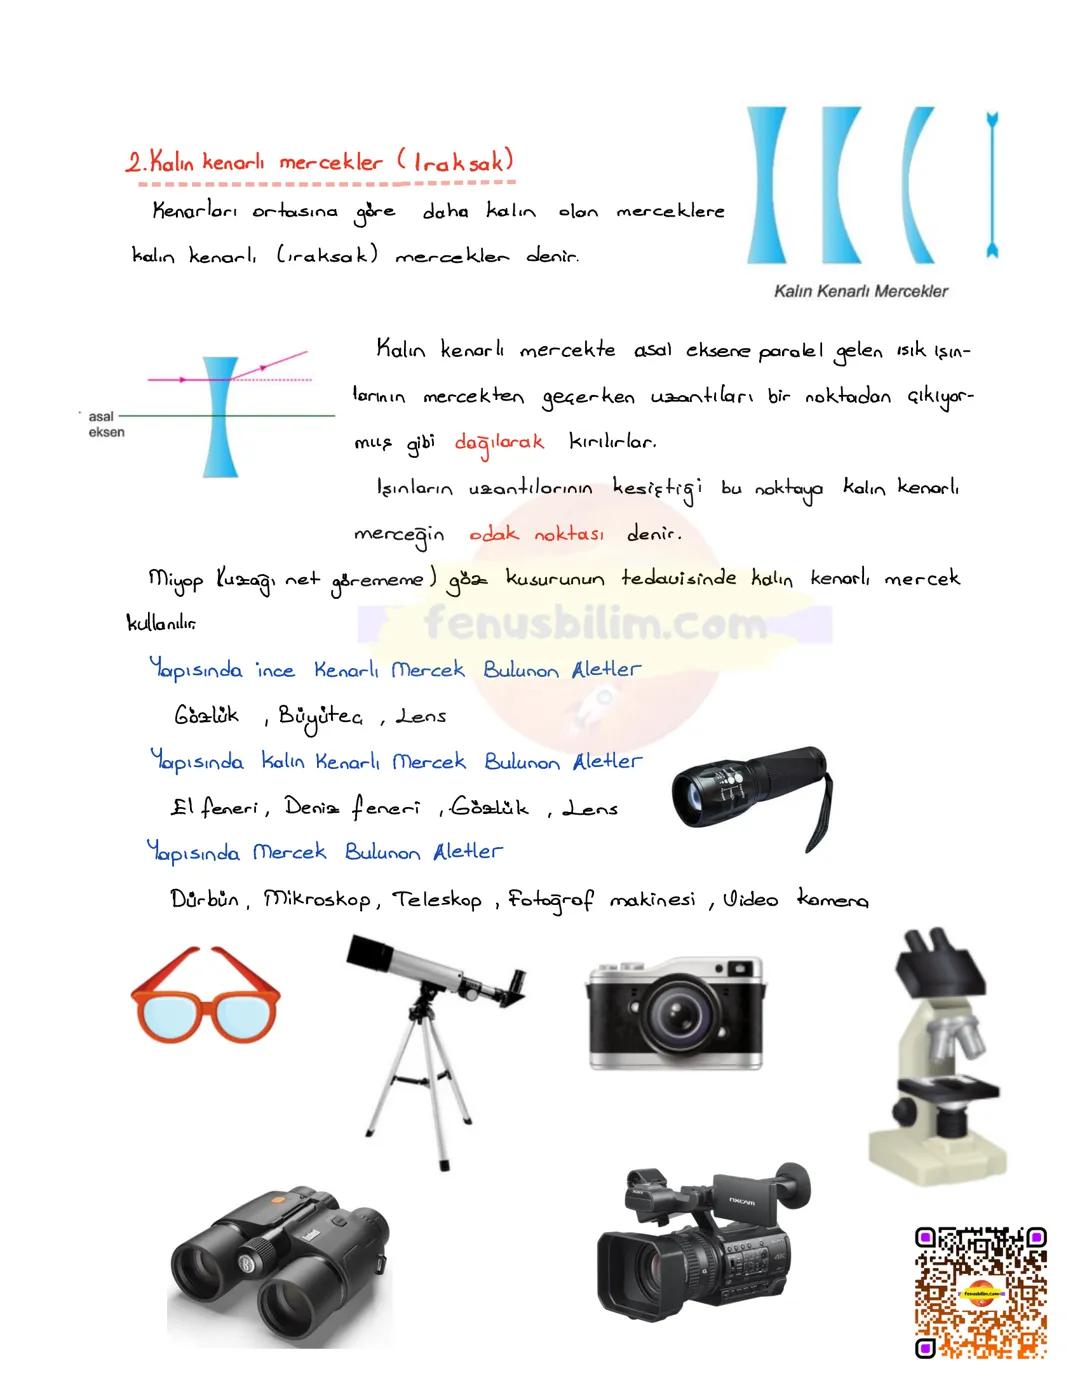 2. Kalın kenarlı mercekler (Iraksak)
Kenarları ortasına göre daha kalın olan merceklere
kalın kenarlı (ıraksak) mercekler denir.
Kalın Kenarlı Mercekler
Kalın kenarlı mercekte asal eksene paralel gelen ışık ışın-
larının mercekten geçerken uzantıları bir noktadan çıkıyor-
muş gibi dağılarak kırılırlar.
asal
eksen
Işınların uzantılarının kesiştiği bu noktaya kalın kenarlı
merceğin odak noktası denir.
Miyop (uzağı net görememe) göz kusurunun tedavisinde kalın kenarlı mercek
kullanılır.
fenusbilim.com
Yapısında ince Kenarlı Mercek Bulunan Aletler
Gözlük , Büyüteç , Lens
Yapısında Kalın Kenarlı Mercek Bulunan Aletler
El feneri, Deniz feneri , Gözlük , Lens
Yapısında Mercek Bulunan Aletler
Dürbün, Mikroskop, Teleskop , Fotoğraf makinesi , Video kamera
NXCAM
4K
fenusbilim.com